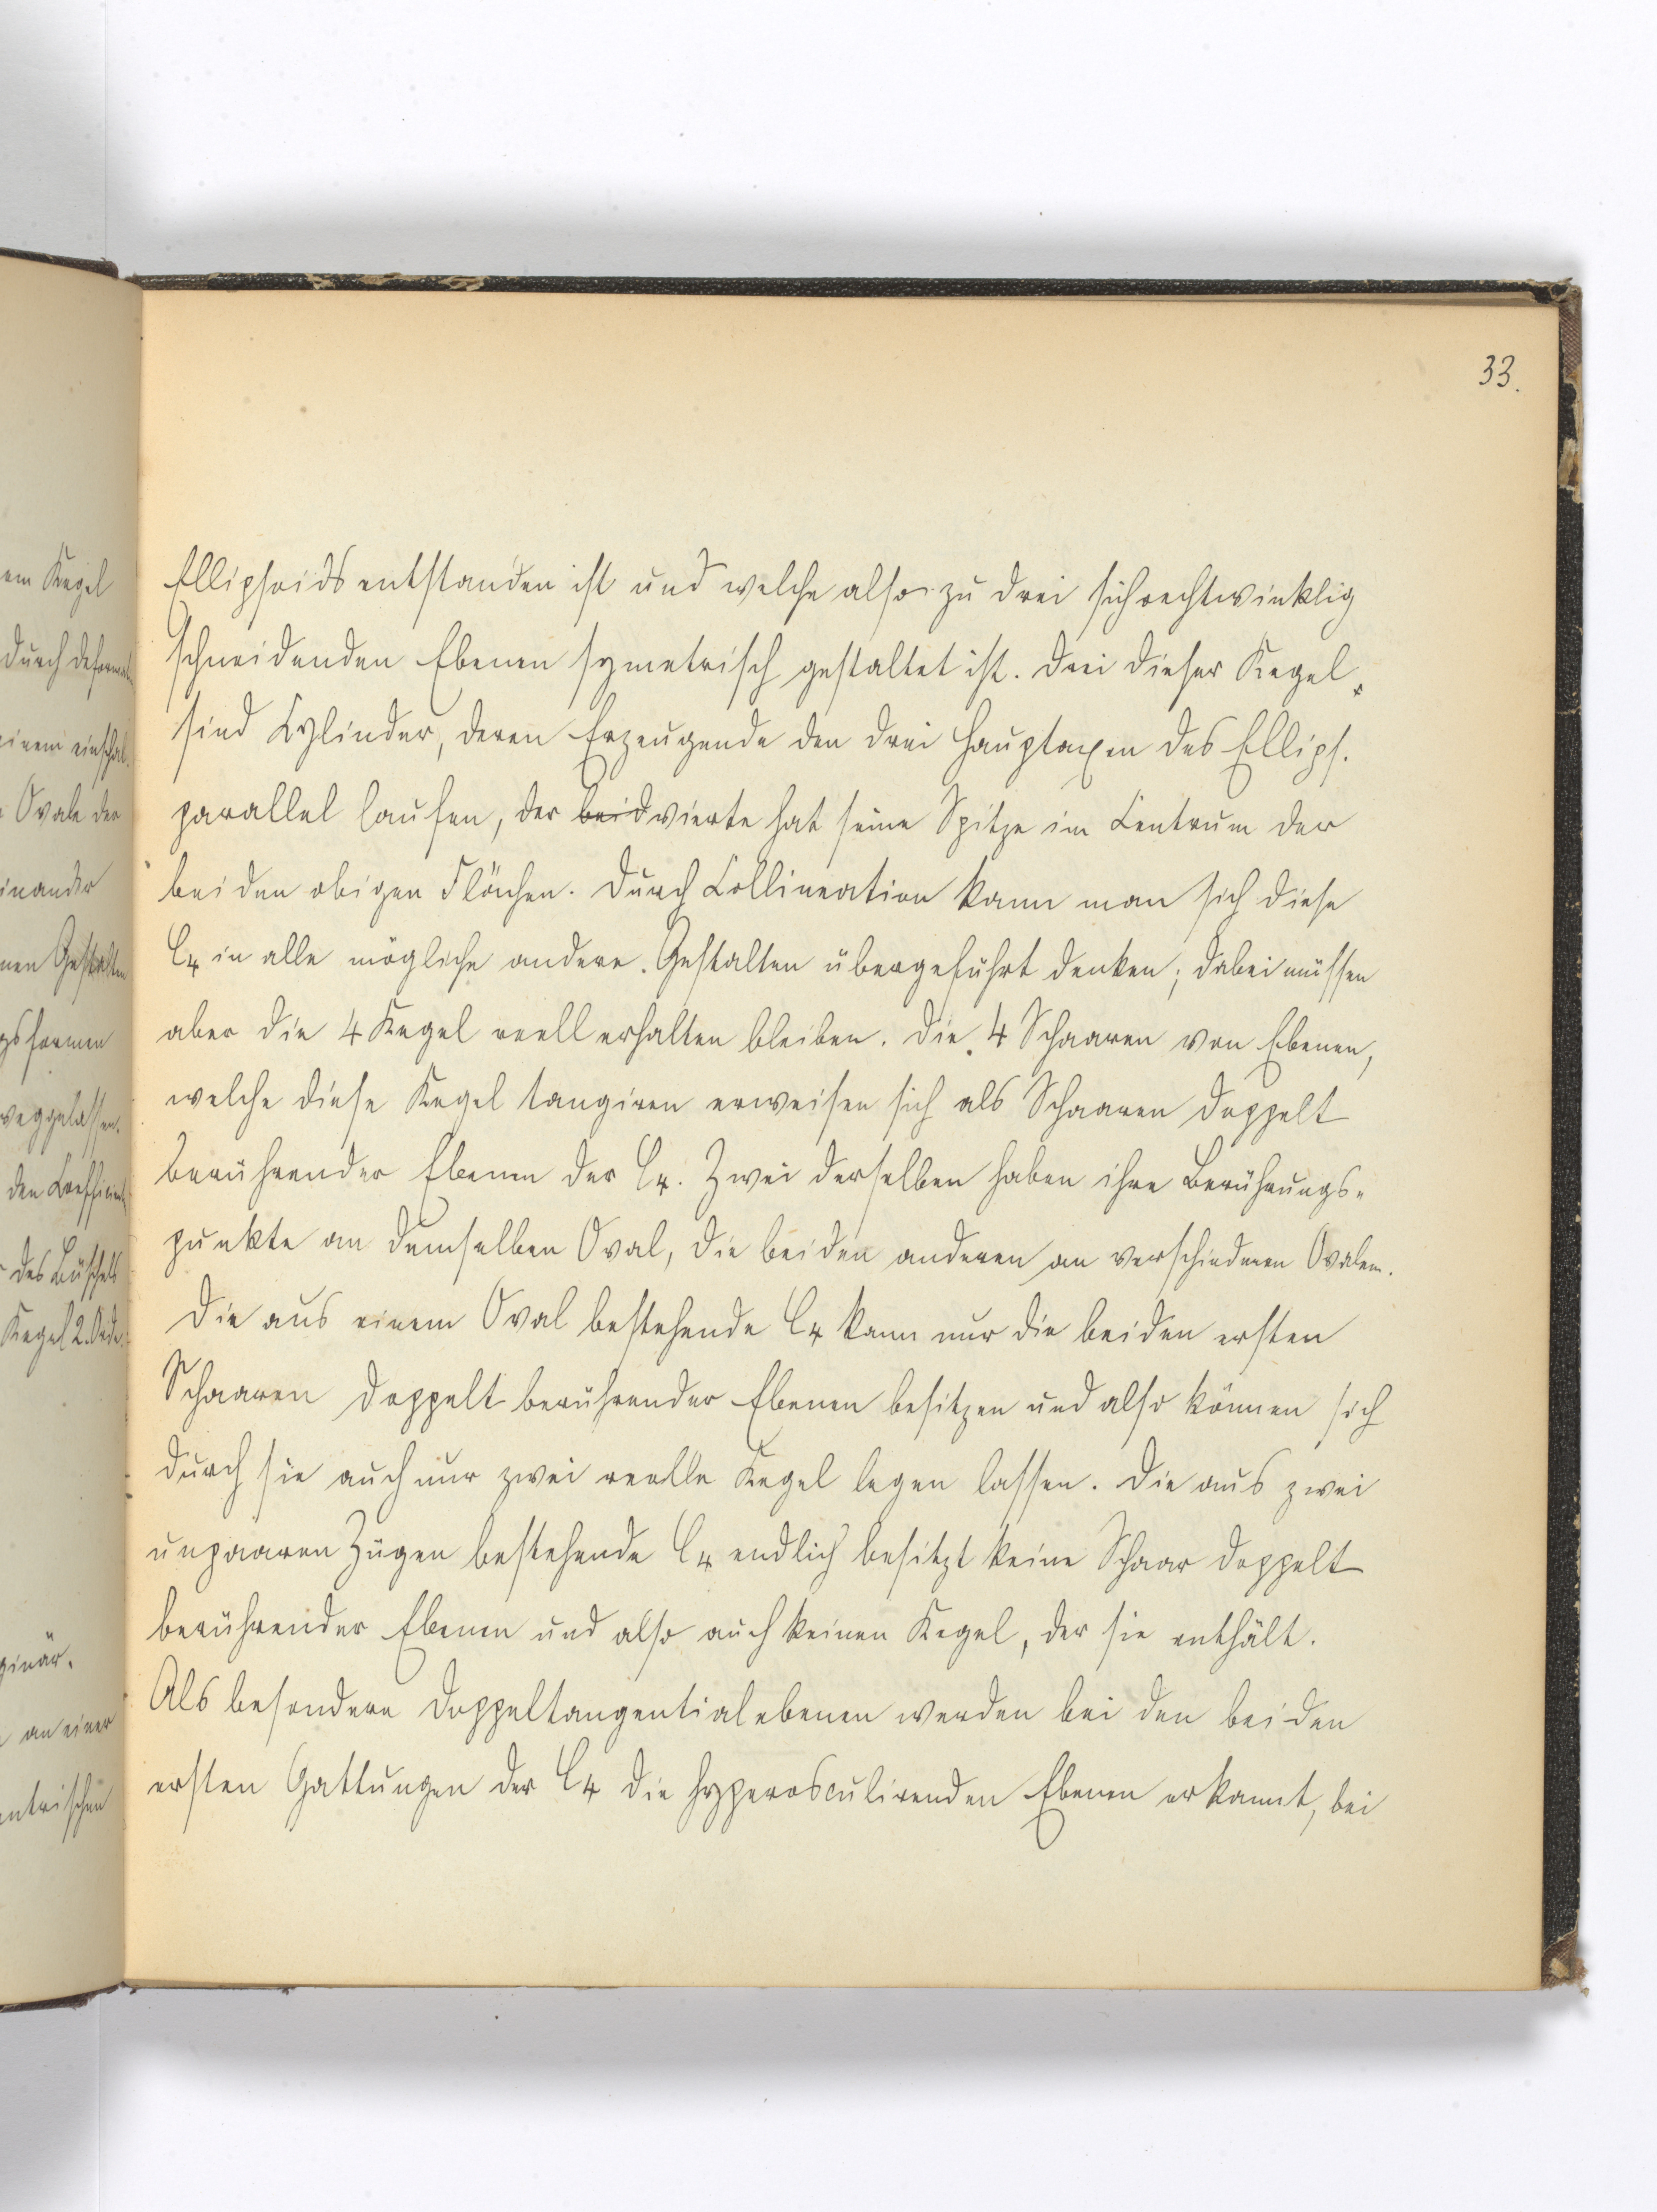 33.
Ellipsoids entstanden ist und welche also zu drei sich rechtwinklig
schneidenden Ebenen symetrisch gestaltet ist. Drei dieser Kegel
sind Cylinder, deren Erzeugende den drei Hauptaxen des Ellips.
parallel laufen, der beid vierte hat seine Spitze im Centrum der
beiden obigen Flächen. Durch Collineation kann man sich diese
C4 in alle mögliche andere Gestalten übergeführt denken; dabei müssen
aber die 4 Kegel reell erhalten bleiben. Die 4 Schaaren von Ebenen,
welche diese Kegel tangiren erweisen sich als Schaaren doppelt
berührender Ebenen der C4. Zwei derselben haben ihre Berührungs-
punkte an demselben Oval, die beiden anderen an verschiedenen Ovalen.
Die aus einem Oval bestehende C4 kann nur die beiden ersten
Schaaren doppelt berührender Ebenen besitzen und also können sich
durch sie auch nur zwei reelle Kegel legen lassen. Die aus zwei
unpaaren Zügen bestehende C4 endlich besitzt keine Schaar doppelt
berührender Ebenen und also auch keinen Kegel, der sie enthält.
Als besondere Doppeltangentialebenen werden bei den beiden
ersten Gattungen der C4 die hyperosculirenden Ebenen erkannt, bei
em Kegel
durch
einem
Ovale der
einander
nen Gestalten
gsformen
weggelassen.
des Büschels
Kegel 2.
ginär.
an einer
entrischen